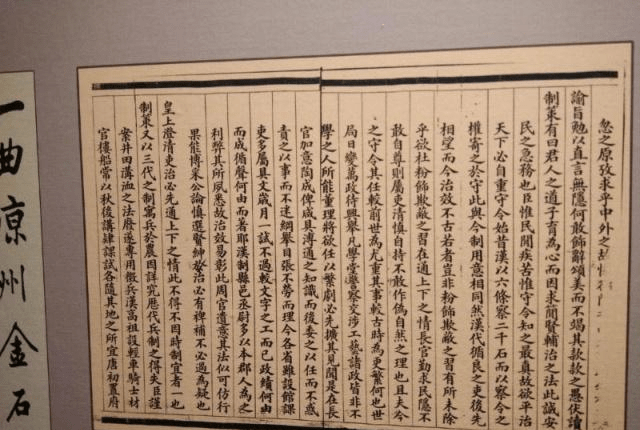 忽之原孜求乎中外之故
諭旨勉以直言無隱何敢飾辭頌美而不竭其款款之愚伏讀
制策有曰君人之道子育為心而因求簡賢輔治之法此誠安
民之急務也臣惟民間疾苦惟守令知之最真故欲平治
天下必自重守令始昔漢以六條察二千石而以察令之
權寄之於守此與今制用意相同然漢代循良之吏後先
相望而今治效不古若者豈非粉飾欺蔽之習有所未除
乎欲杜粉飾欺蔽之習在通上下之情長官勤求民隱不
敢自尊則屬吏清慎自持不敢作偽自然之理也且夫今
之守令其任較前世為尤重其事較古時為多繁何也世
局日變萬政待興舉凡學堂警察交涉工藝諸政皆非不
學之人所能董理將欲任以繁劇必先擴其見聞是在長
官加意陶成俾咸具溥通之知識而後委之以任而不惑
責之以事而不迷綱舉目張不勞而理今各省雖設館課
吏多屬具文歲月一試不過較文字之工而已政績何由
而成循聲何由而著耶漢制縣邑丞尉多以本郡人為之
利弊其所夙悉故治效易彰此周官遺意其法似可仿行
果能博采公論慎選賢紳於治必有裨補不必過為疑也
皇上澄清吏治必先通上下之情此不得不因時制宜者一也
制策又以三代之制寓兵於農因詳究歷代兵制之得失臣謹
案井田溝洫之法廢遂專用徵兵漢高祖設輕車騎士材
官樓船常以秋後講肄課試各隨其地之所宜唐初置府
一曲涼州金石